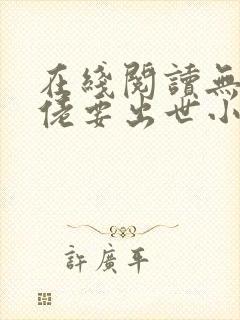 在綫閱讀無
佬要出世小
許廣平